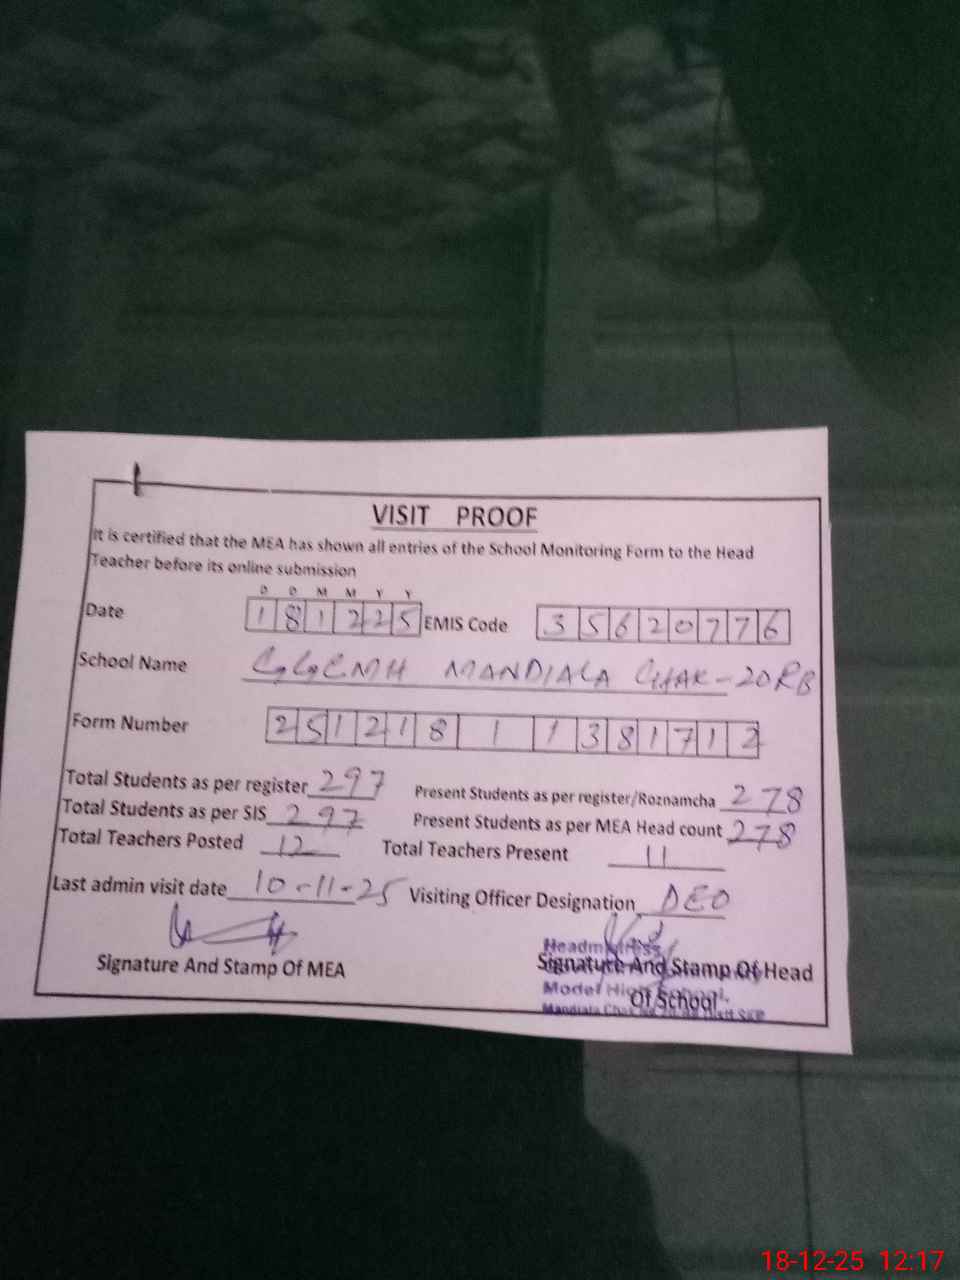 VISIT PROOF
It is certified that the MEA has shown all entries of the School Monitoring Form to the Head
Teacher before its online submission
D D M M Y Y
Date 181225 EMIS Code 35620776
School Name GGCMH MANDIALA CHAK-20RB
Form Number 25121811381712
Total Students as per register 297 Present Students as per register/Roznamcha 278
Total Students as per SIS 297 Present Students as per MEA Head count 278
Total Teachers Posted 12 Total Teachers Present 11
Last admin visit date 10-11-25 Visiting Officer Designation DEO
Signature And Stamp Of MEA Signature And Stamp Of Head
Of School
Headmistress
Model High School
Mandiala
18-12-25 12:17